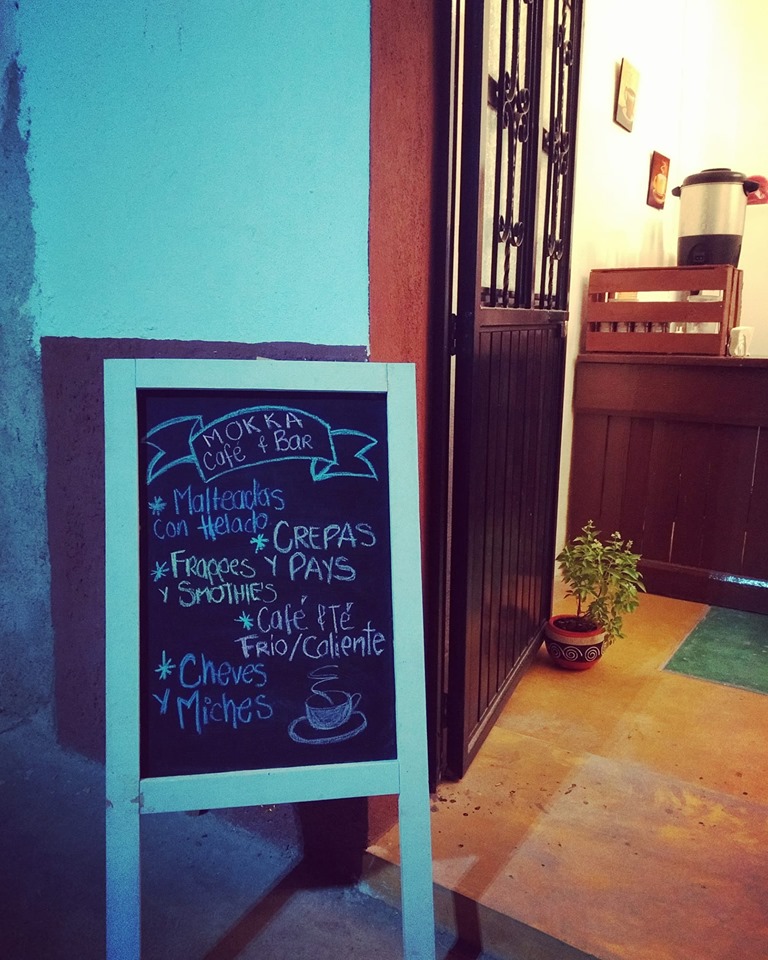 MOKKA
Café & Bar
* Malteadas
con Helado
* CREPAS
Y PAYS
* Frappes
Y SMOTHIE'S
* Café & Té
Frío/Caliente
* Cheves
Y Miches